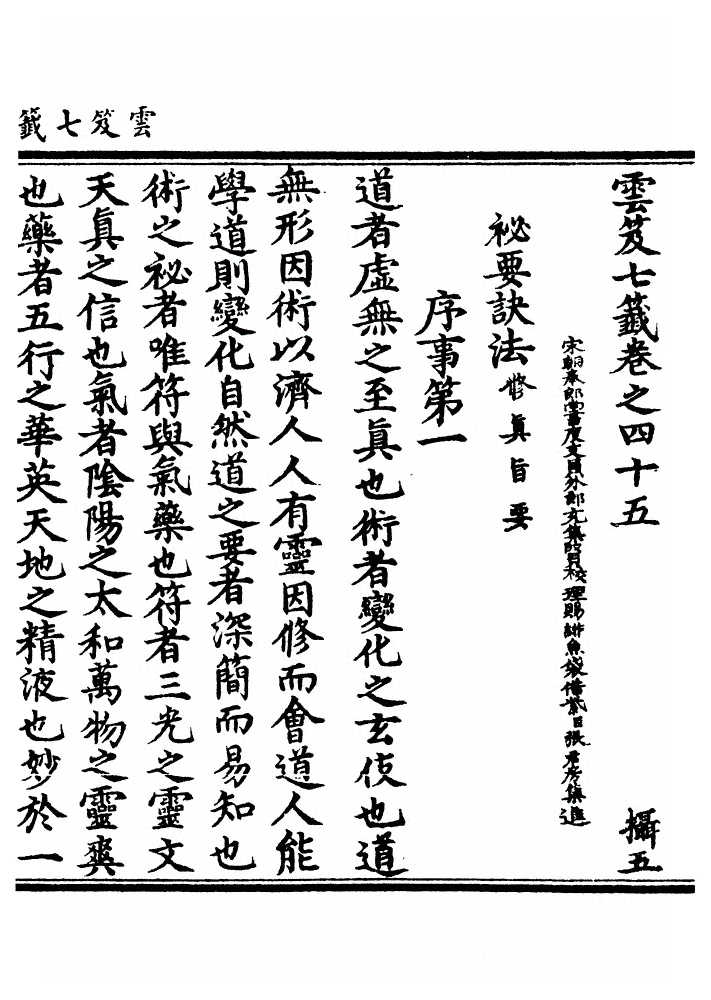 雲笈七籤
雲笈七籤卷之四十五 攝五
宋朝奉郎尚書度支員外郎充集賢校理賜緋魚袋借紫臣張君房集進
祕要訣法修真旨要
序事第一
道者虛無之至眞也術者變化之玄伎也道
無形因術以濟人人有靈因修而會道人能
學道則變化自然道之要者深簡而易知也
術之祕者唯符與氣藥也符者三光之靈文
天眞之信也氣者陰陽之太和萬物之靈爽
也藥者五行之華英天地之精液也妙於一